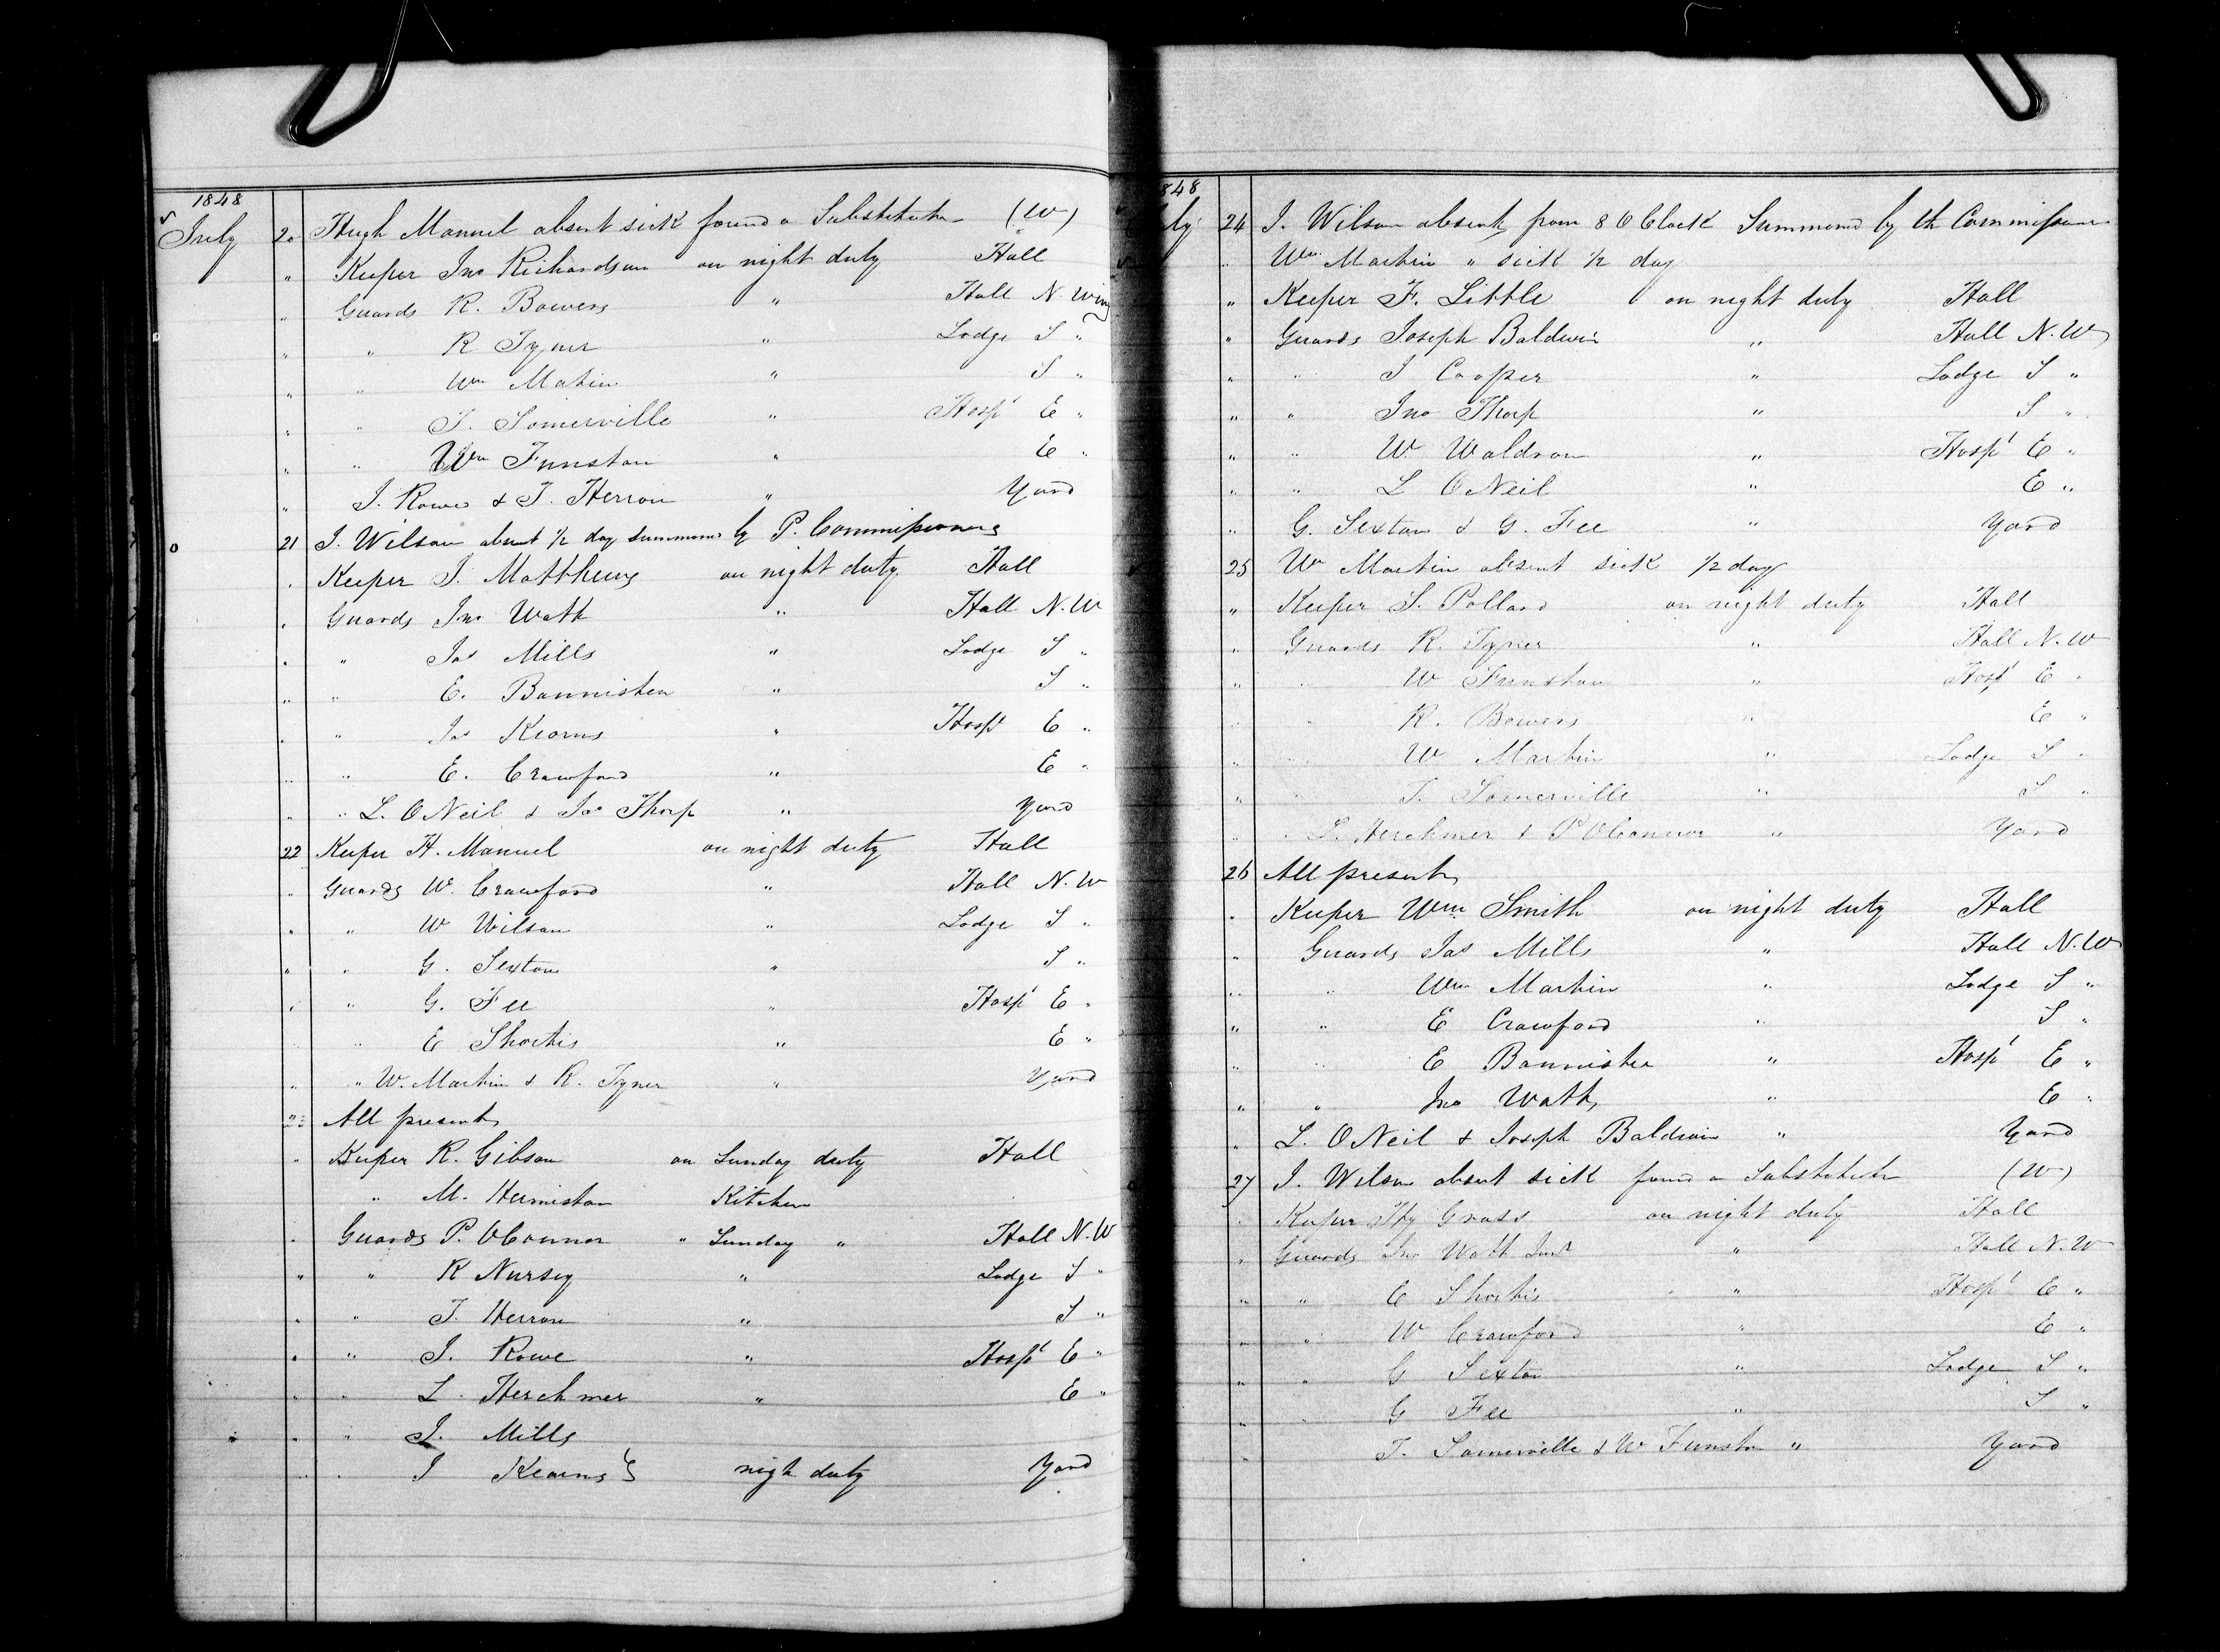 1848
July 20 Hugh Manuel absent sick found a Substitute (W)
" Keeper Jno Richardson on night duty Hall
" Guards R. Bowers " Hall N. Wing
" " R Tyner " Lodge S "
" " Wm Matin " S "
" " T. Somerville " Hospl E "
" " Wm Funston " E "
" J. Rowe & T. Herron " Yard
21 J. Wilson absent 1/2 day summons by P. Commissioners
" Keeper J. Matthews on night duty. Hall
" Guards Jno Watt " Hall N. W
" " Jas Mills " Lodge S "
" " E. Bannister " S "
" " Jas Kearns " Hospl E "
" " E. Crawford " E "
" " L. ONeil & Jas Thorp " Yard
22 Keeper H. Manuel on night duty Hall
" Guards W. Crawford " Hall N. W
" " W Wilson " Lodge S "
" " G. Sexton " S "
" " G. Fee " Hospl E "
" " E Shortis " E "
" " W. Martin & R. Tyner " Yard
23 All present
" Keeper R. Gibson on Sunday duty Hall
" M. Hermiston Kitchen
" Guards P. OConnor " Sunday " Hall N. W
" " R Nursey " Lodge S "
" " T. Herron " S "
" " J. Rowe " Hospl E "
" " L. Herchmer " E "
" " J. Mills
" " J Kearns } nigh duty Yard
1848
July 24 J. Wilson absent from 8 O Clock Summoned by th Commissioners
" Wm Martin " sick 1/2 day
" Keeper F. Little on night duty Hall
" Guards Joseph Baldwin " Hall N. W
" " J Cooper " Lodge S "
" " Jno Thorp " S "
" " W Waldron " Hospl E "
" " L ONeil " E "
" G. Sexton & G. Fee " Yard
25 Wm Martin absent sick 1/2 day
" Keeper S. Pollard on night duty Hall
" Guards R. Tyner " Hall N. W
" " W Funston " Hospl E "
" " R. Bowers " E "
" " W Martin " Lodge S "
" " T. Somerville " S "
" " L. Herchmer & P OConnor " Yard
26 All present
" Keeper Wm Smith on night duty Hall
" Guards Jas Mills " Hall N. W
" " Wm Martin " Lodge S "
" " E Crawford " S "
" " E Bannister " Hospl E "
" " Jno Watt " E "
" L. ONeil & Joseph Baldwin " Yard
27 J. Wilson absent sick found a Substitute (W)
" Keeper Hy Grass on night duty Hall
" Guards Jno Watt Junr " Hall N. W
" " E Shortis " Hospl E "
" " W Crawford " E "
" " G Sexton " Lodge S "
" " G Fee " S "
" T. Somerville & W Funston " Yard